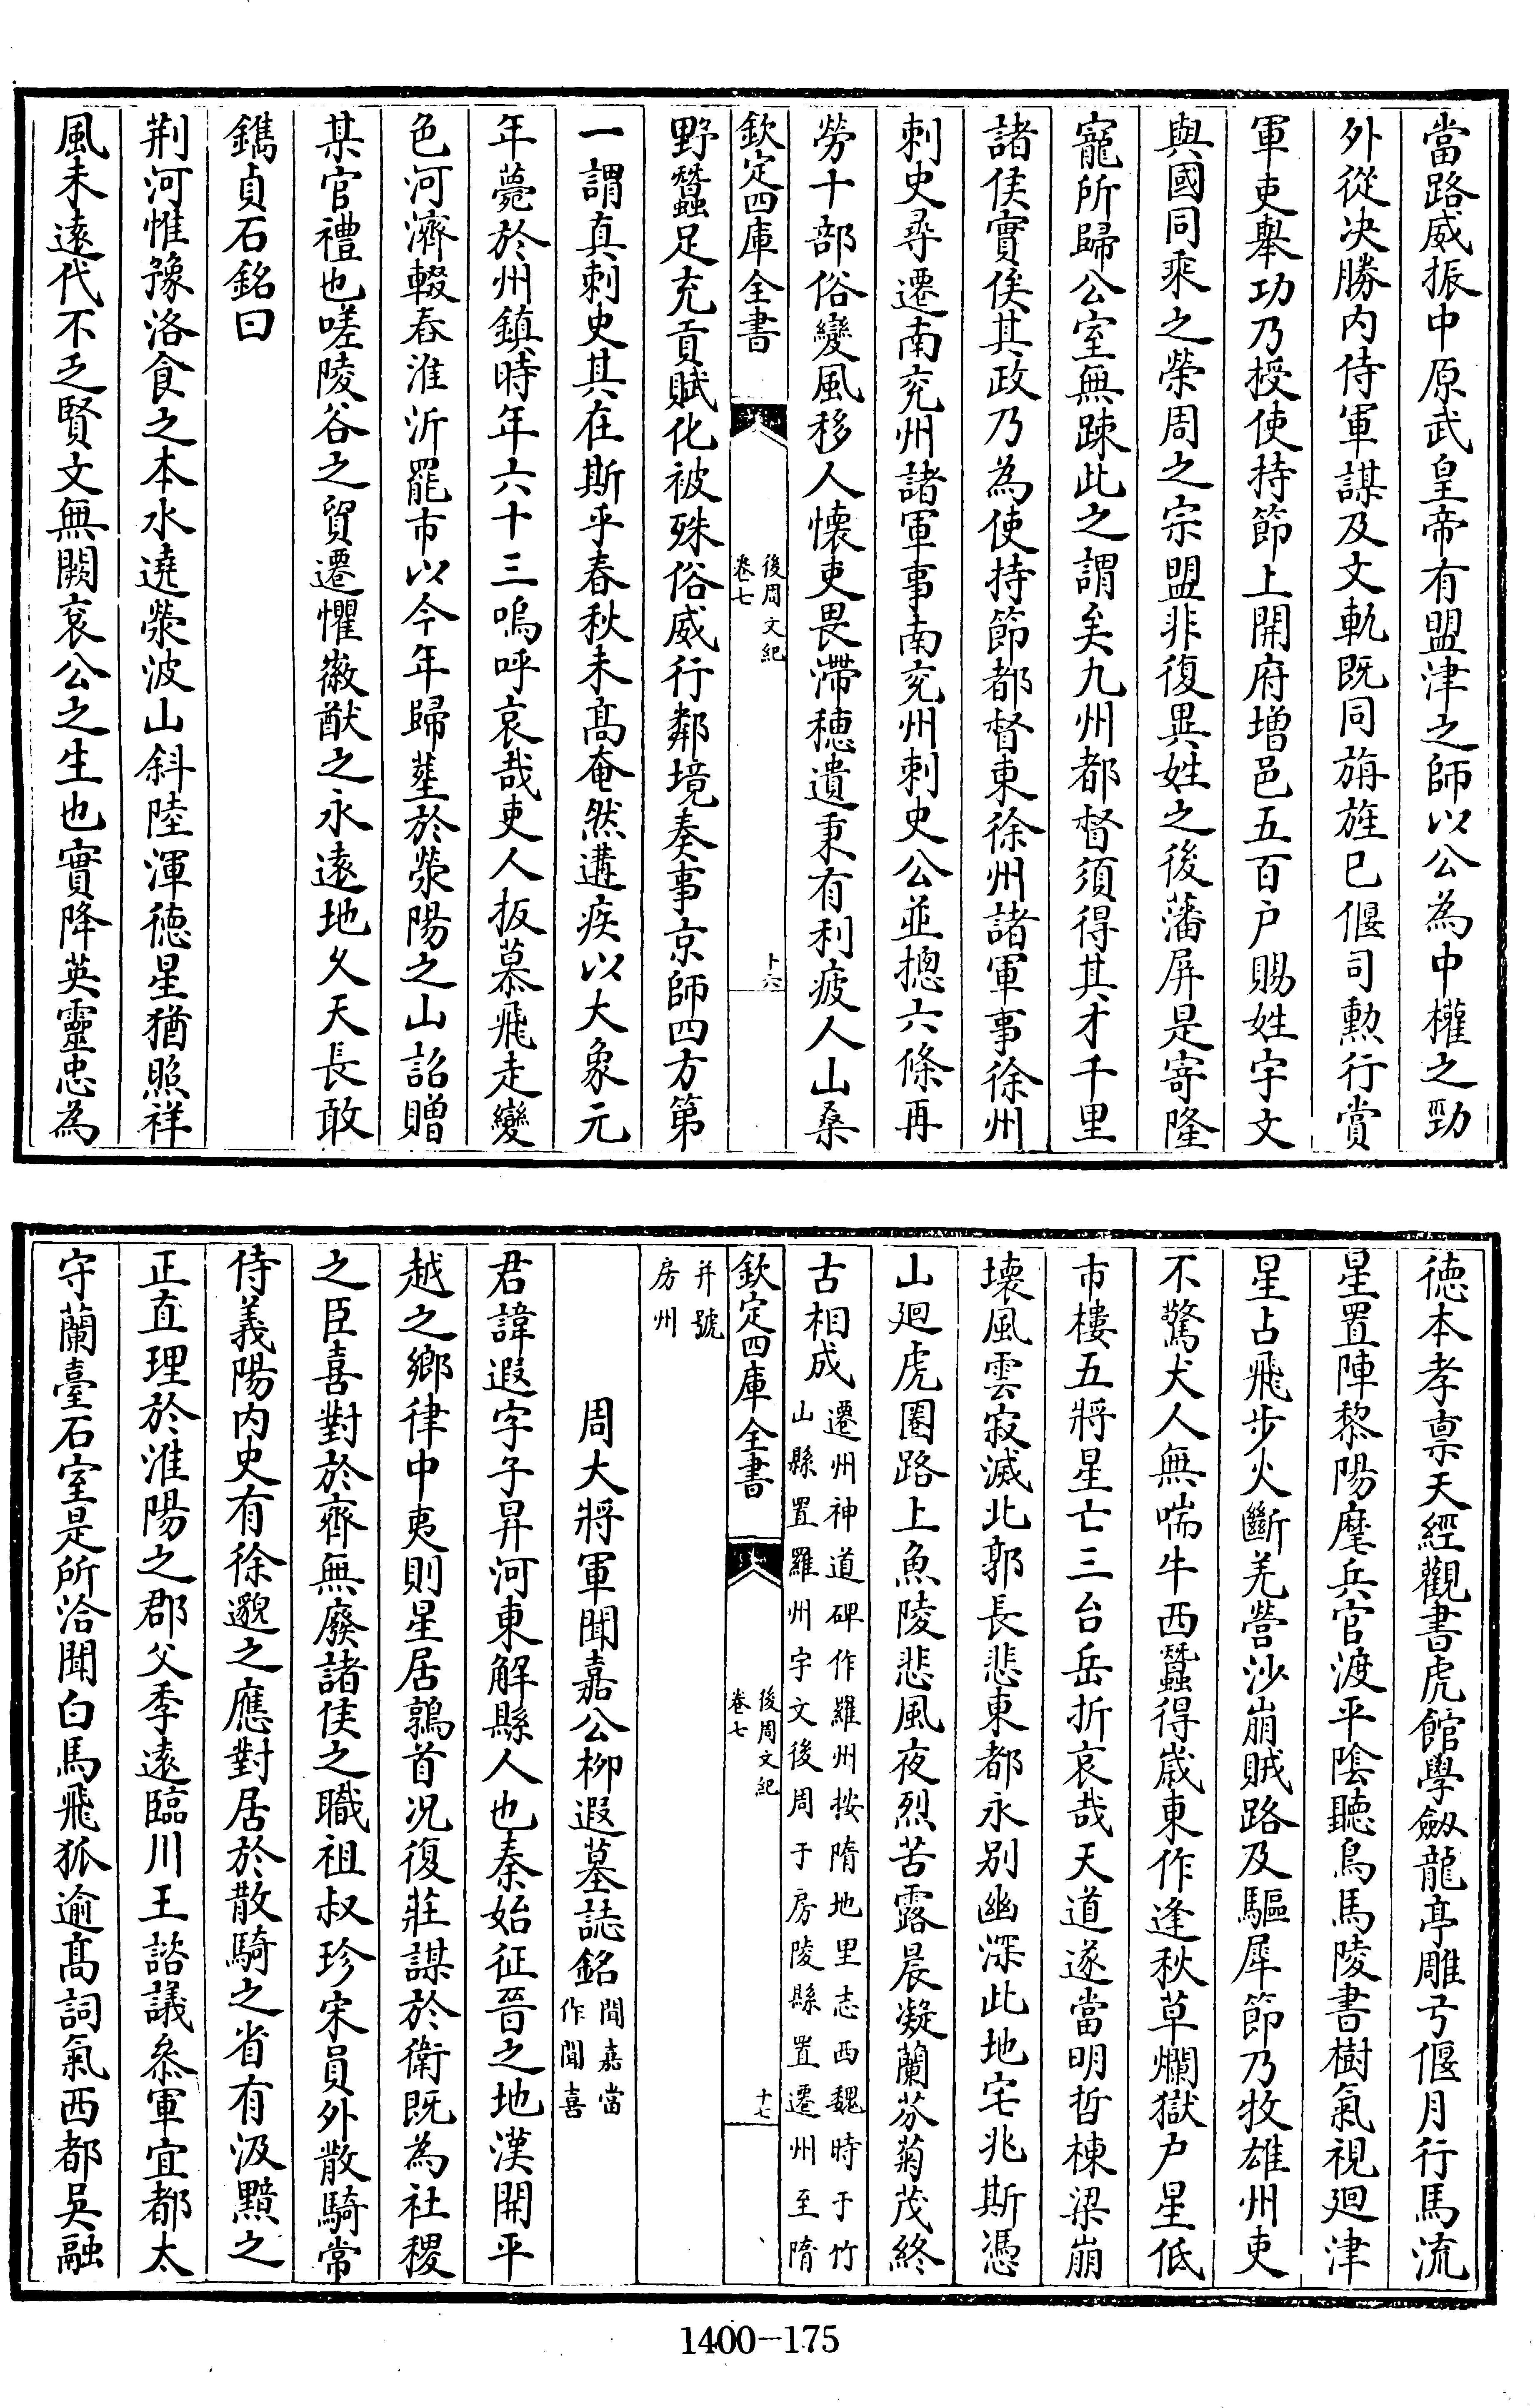 當路威振中原武皇帝有盟津之師以公為中權之勁
外從决勝内侍軍謀及文軌既同旃旌已偃司勲行賞
軍吏舉功乃授使持節上開府增邑五百户賜姓宇文
與國同乘之榮周之宗盟非復異姓之後藩屏是寄隆
寵所歸公室無疎此之謂矣九州都督須得其才千里
諸侯實俟其政乃為使持節都督東徐州諸軍事徐州
刺史尋遷南兖州諸軍事南兖州刺史公並摠六條再
勞十部俗變風移人懷吏畏滯穂遺秉有利疲人山桑
欽定四庫全書
後周文紀
卷七
十六
野蠶足充貢賦化被殊俗威行鄰境奏事京師四方第
一謂真刺史其在斯乎春秋未髙奄然遘疾以大象元
年薨於州鎮時年六十三嗚呼哀哉吏人扳慕飛走變
色河濟輟舂淮沂罷市以今年歸塟於滎陽之山詔贈
某官禮也嗟陵谷之貿遷懼徽猷之永遠地久天長敢
鐫貞石銘曰
荆河惟豫洛食之本水遶滎波山斜陸渾徳星猶照祥
風未遠代不乏賢文無闕衮公之生也實降英靈忠為
徳本孝禀天經觀書虎館學劔龍亭雕弓偃月行馬流
星置陣黎陽麾兵官渡平隂聽鳥馬陵書樹氣視廻津
星占飛步火斷羌營沙崩賊路及驅犀節乃牧雄州吏
不驚犬人無喘牛西蠶得歳東作逢秋草爛獄户星低
市樓五將星亡三台岳折哀哉天道遂當明哲棟梁崩
壊風雲寂滅北郭長悲東都永别幽深此地宅兆斯憑
山廻虎圏路上魚陵悲風夜烈苦露晨凝蘭芬菊茂終
古相成
遷州神道碑作羅州按隋地里志西魏時于竹
山縣置羅州宇文後周于房陵縣置遷州至隋
欽定四庫全書
後周文紀
卷七
十七
并號
房州
周大將軍聞嘉公柳遐墓誌銘
聞嘉當
作聞喜
君諱遐字子昇河東解縣人也秦始征晉之地漢開平
越之鄉律中夷則星居鶉首况復莊謀於衛既為社稷
之臣喜對於齊無廢諸侯之職祖叔珍宋員外散騎常
侍義陽内史有徐邈之應對居於散騎之省有汲黯之
正直理於淮陽之郡父季遠臨川王諮議叅軍宜都太
守蘭臺石室是所洽聞白馬飛狐逾髙詞氣西都吳融
1400-175